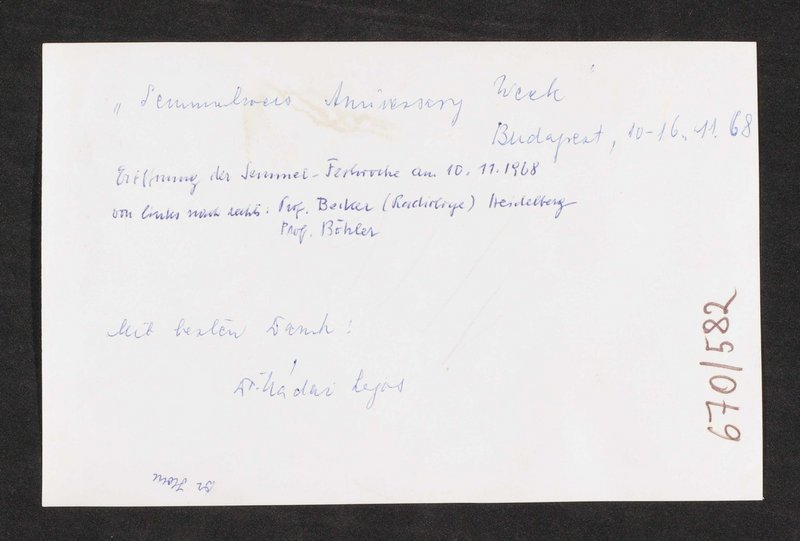 „Semmelweis Anniversary Week"
Budapest, 10-16. 11. 68
Eröffnung der Semmel-Festwoche am 10. 11. 1968
von links nach rechts: Prof. Becker (Radiologe) Heidelberg
Prof. Böhler
Mit besten Dank!
Dr.
670/582
Dr